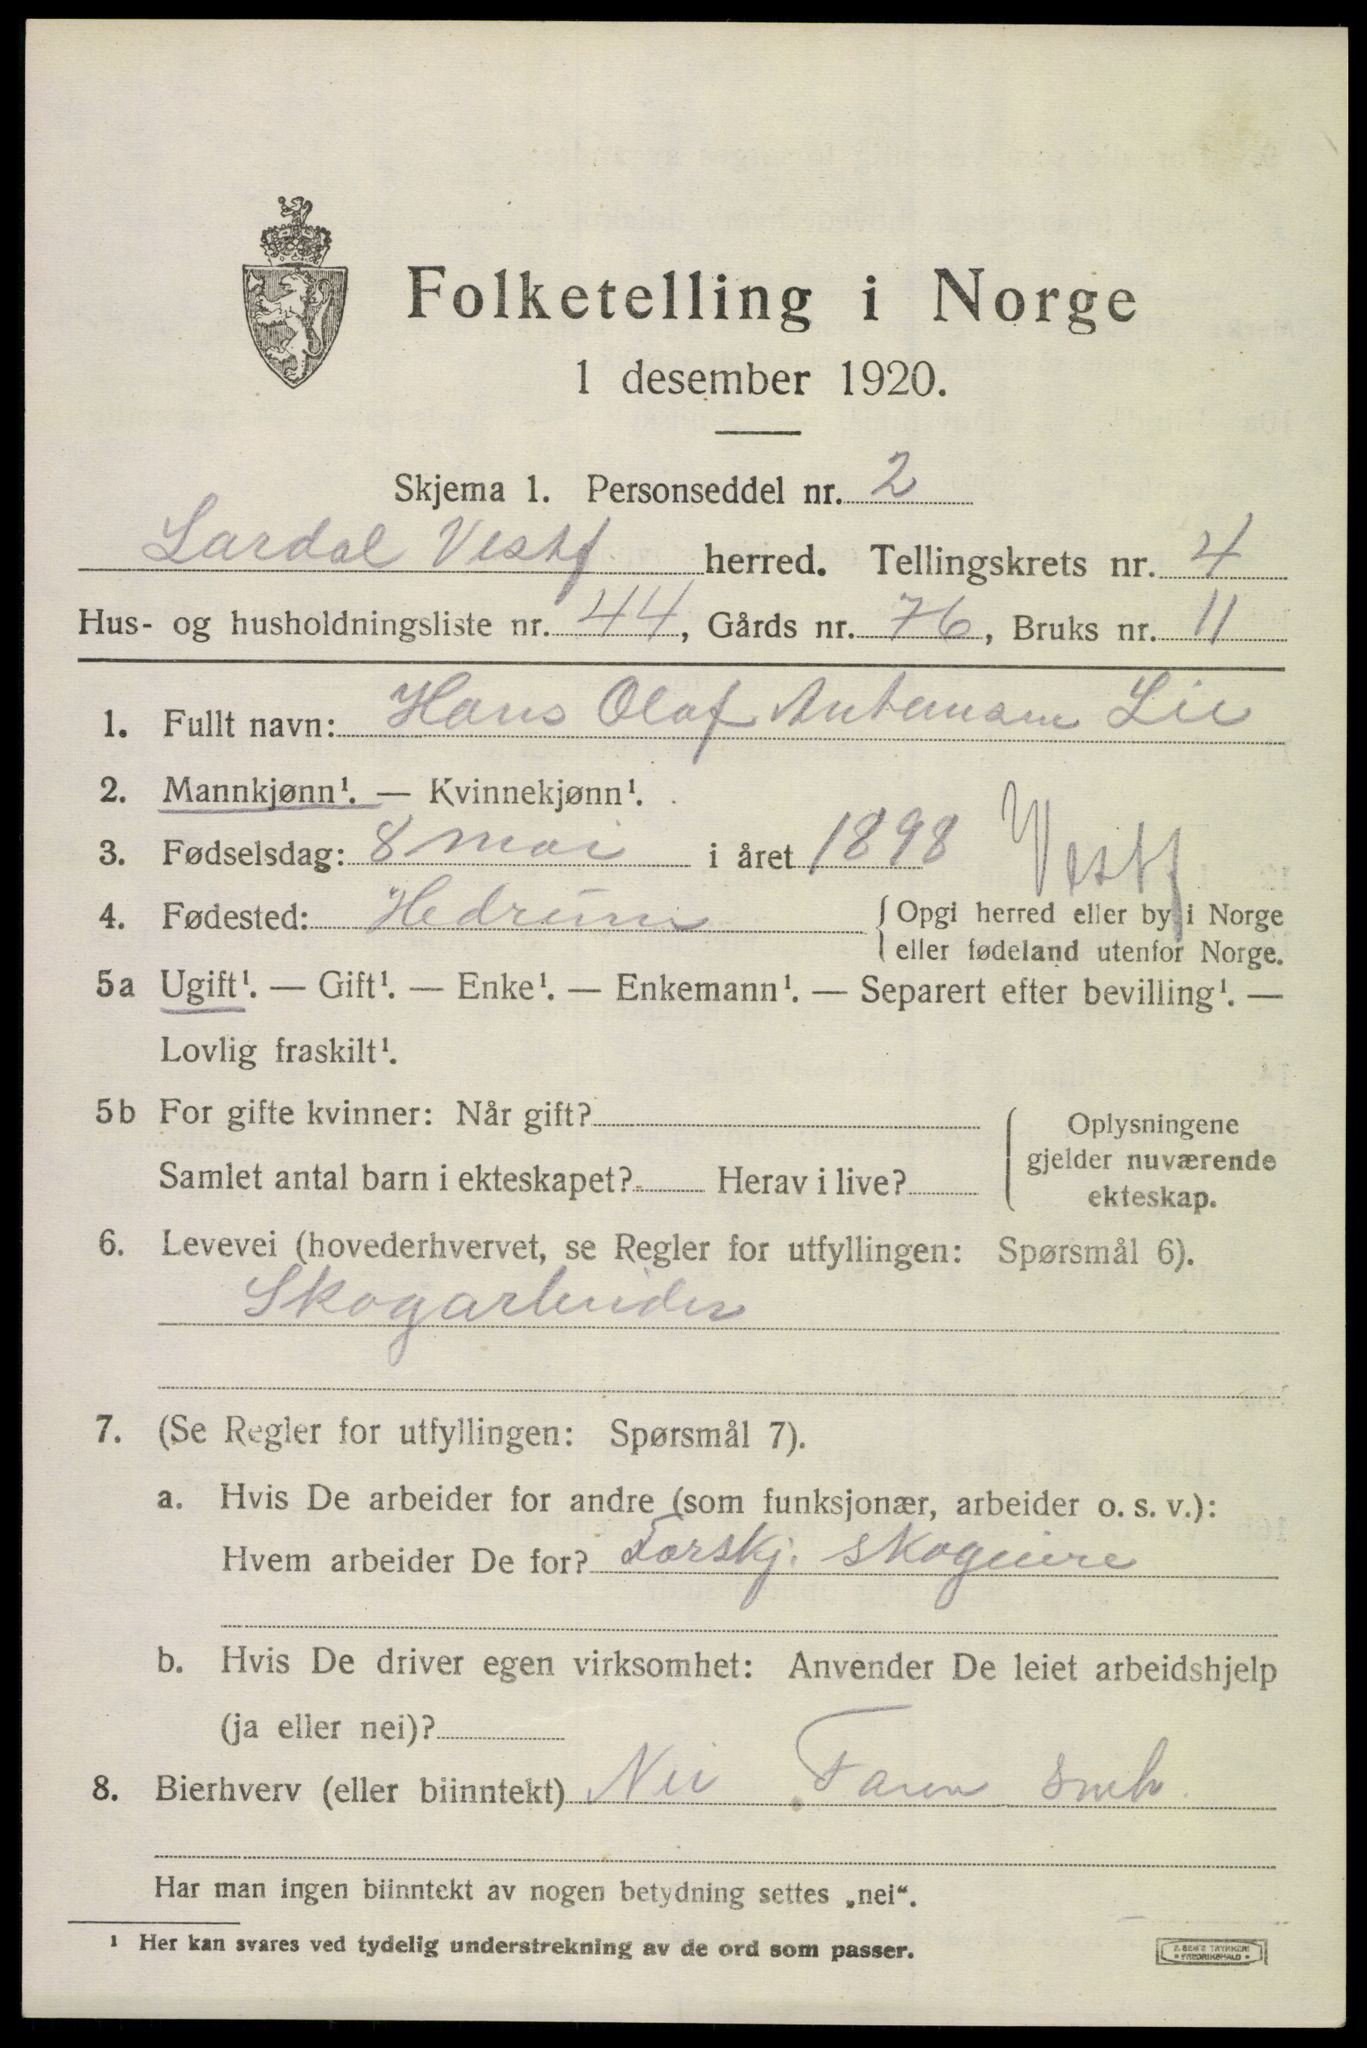 Folketelling i Norge
1 desember 1920.
Skjema 1. Personseddel nr. 2
Lardal Vestf herred. Tellingskrets nr. 4
Hus- og husholdningsliste nr. 44, Gårds nr. 76, Bruks nr. 11
1. Fullt navn: Hans Olaf Antonsen Lie
2. Mannkjønn¹. — Kvinnekjønn¹.
3. Fødselsdag: 8 mai i året 1898 Vestf
4. Fødested: Hedrum { Opgi herred eller by i Norge
eller fødeland utenfor Norge.
5a Ugift¹. — Gift¹. — Enke¹. — Enkemann¹. — Separert efter bevilling¹. —
Lovlig fraskilt¹.
5b For gifte kvinner: Når gift?
Oplysningene
gjelder nuværende
ekteskap.
Samlet antal barn i ekteskapet? Herav i live?
6. Levevei (hovederhvervet, se Regler for utfyllingen: Spørsmål 6).
Skogarbeider
7. (Se Regler for utfyllingen: Spørsmål 7).
a. Hvis De arbeider for andre (som funksjonær, arbeider o. s. v.):
Hvem arbeider De for? Forskj. skogeiere
b. Hvis De driver egen virksomhet: Anvender De leiet arbeidshjelp
(ja eller nei)?
8. Bierhverv (eller biinntekt) Nei
Har man ingen biinntekt av nogen betydning settes „nei“.
¹ Her kan svares ved tydelig understrekning av de ord som passer.